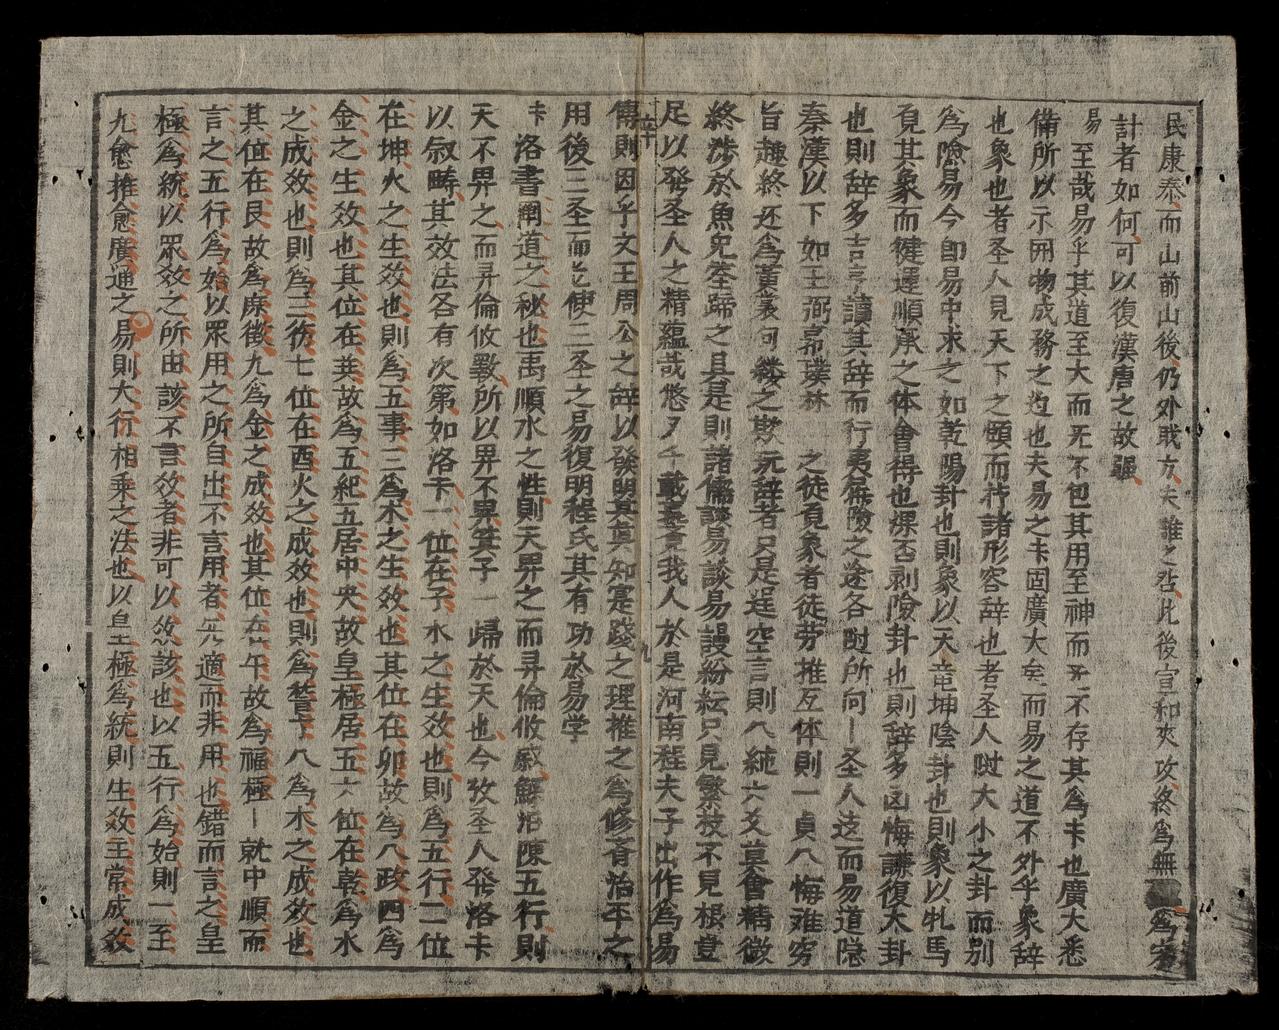 民康泰而山前山後仍外戝方夫誰之咎此後宣和夾攻終爲無 爲宋
計者如何可以復漢唐之故疆
易　至哉易乎其道至大而无不包其用至神而无不存其爲卞也廣大悉
備所以示開物成務之 也夫易之卞固廣大矣而易之道不外乎象辞
也象也者圣人見天下之賾而 諸形容辞也者圣人 大小之卦而别
爲險易今即易中求之如乾陽卦也則象以天 坤陰卦也則象以牝馬
覓其象而健運順承之体會得也 否剥險卦也則辞多凶悔謙復大卦
也則辞多吉亨讀其辞而行夷 險之途各 所向一圣人 而易道隐
秦漢以下如王弼 璞林　之徒覓象者徒劳推互体則一貞八悔难穷
旨趣終还爲黃裳何 之 玩辞者只是逞空言則八純六爻莫會精微
終涉於魚兔筌蹄之具是則諸儒談易談易謾紛紜只見繁枝不見根豈
足以發圣人之精蘊哉悠〃千載 我人於是河南程夫子出作爲易
傳則因乎文王周公之辞以發明其眞知寔踐之理推之爲修齐治平之
用後二圣而 使三圣之易復明程氏其有功於易学
卞　洛書闡道之秘也禹順水之性則天畀之而彛倫攸 鯀 陳五行則
天不畀之而彛倫攸斁所以畀不畀箕子一歸於天也今攷圣人發洛卞
以叙疇其效法各有次第如洛卞一位在子水之生效也則爲五行二位
在坤火之生效也則爲五事三爲木之生效也其位在卯故爲八政四爲
金之生效也其位在巽故爲五紀五居中央故皇極居五六位在乾爲水
之成效也則爲三 七位在酉火之成效也則爲 八爲木之成效也
其位在艮故爲庶徵九爲金之成效也其位在午故爲福極一就中順而
言之五行爲始以眾用之所自出不言用者无適而非用也錯而言之皇
極爲統以眾效之所由該不言效者非可以效該也以五行爲始則一至
九愈推愈廣通之易則大衍相乘之法也以皇極爲統則生效主常成效